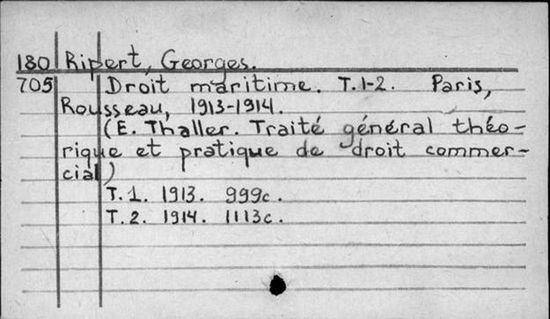 180 Ripert, Georges.
705 Droit maritime. T.1-2. Paris,
Rousseau, 1913-1914.
(E. Thaller. Traité général théo-
rique et pratique de droit commer-
cial)
T.1. 1913. 999c.
T.2. 1914. 1113c.